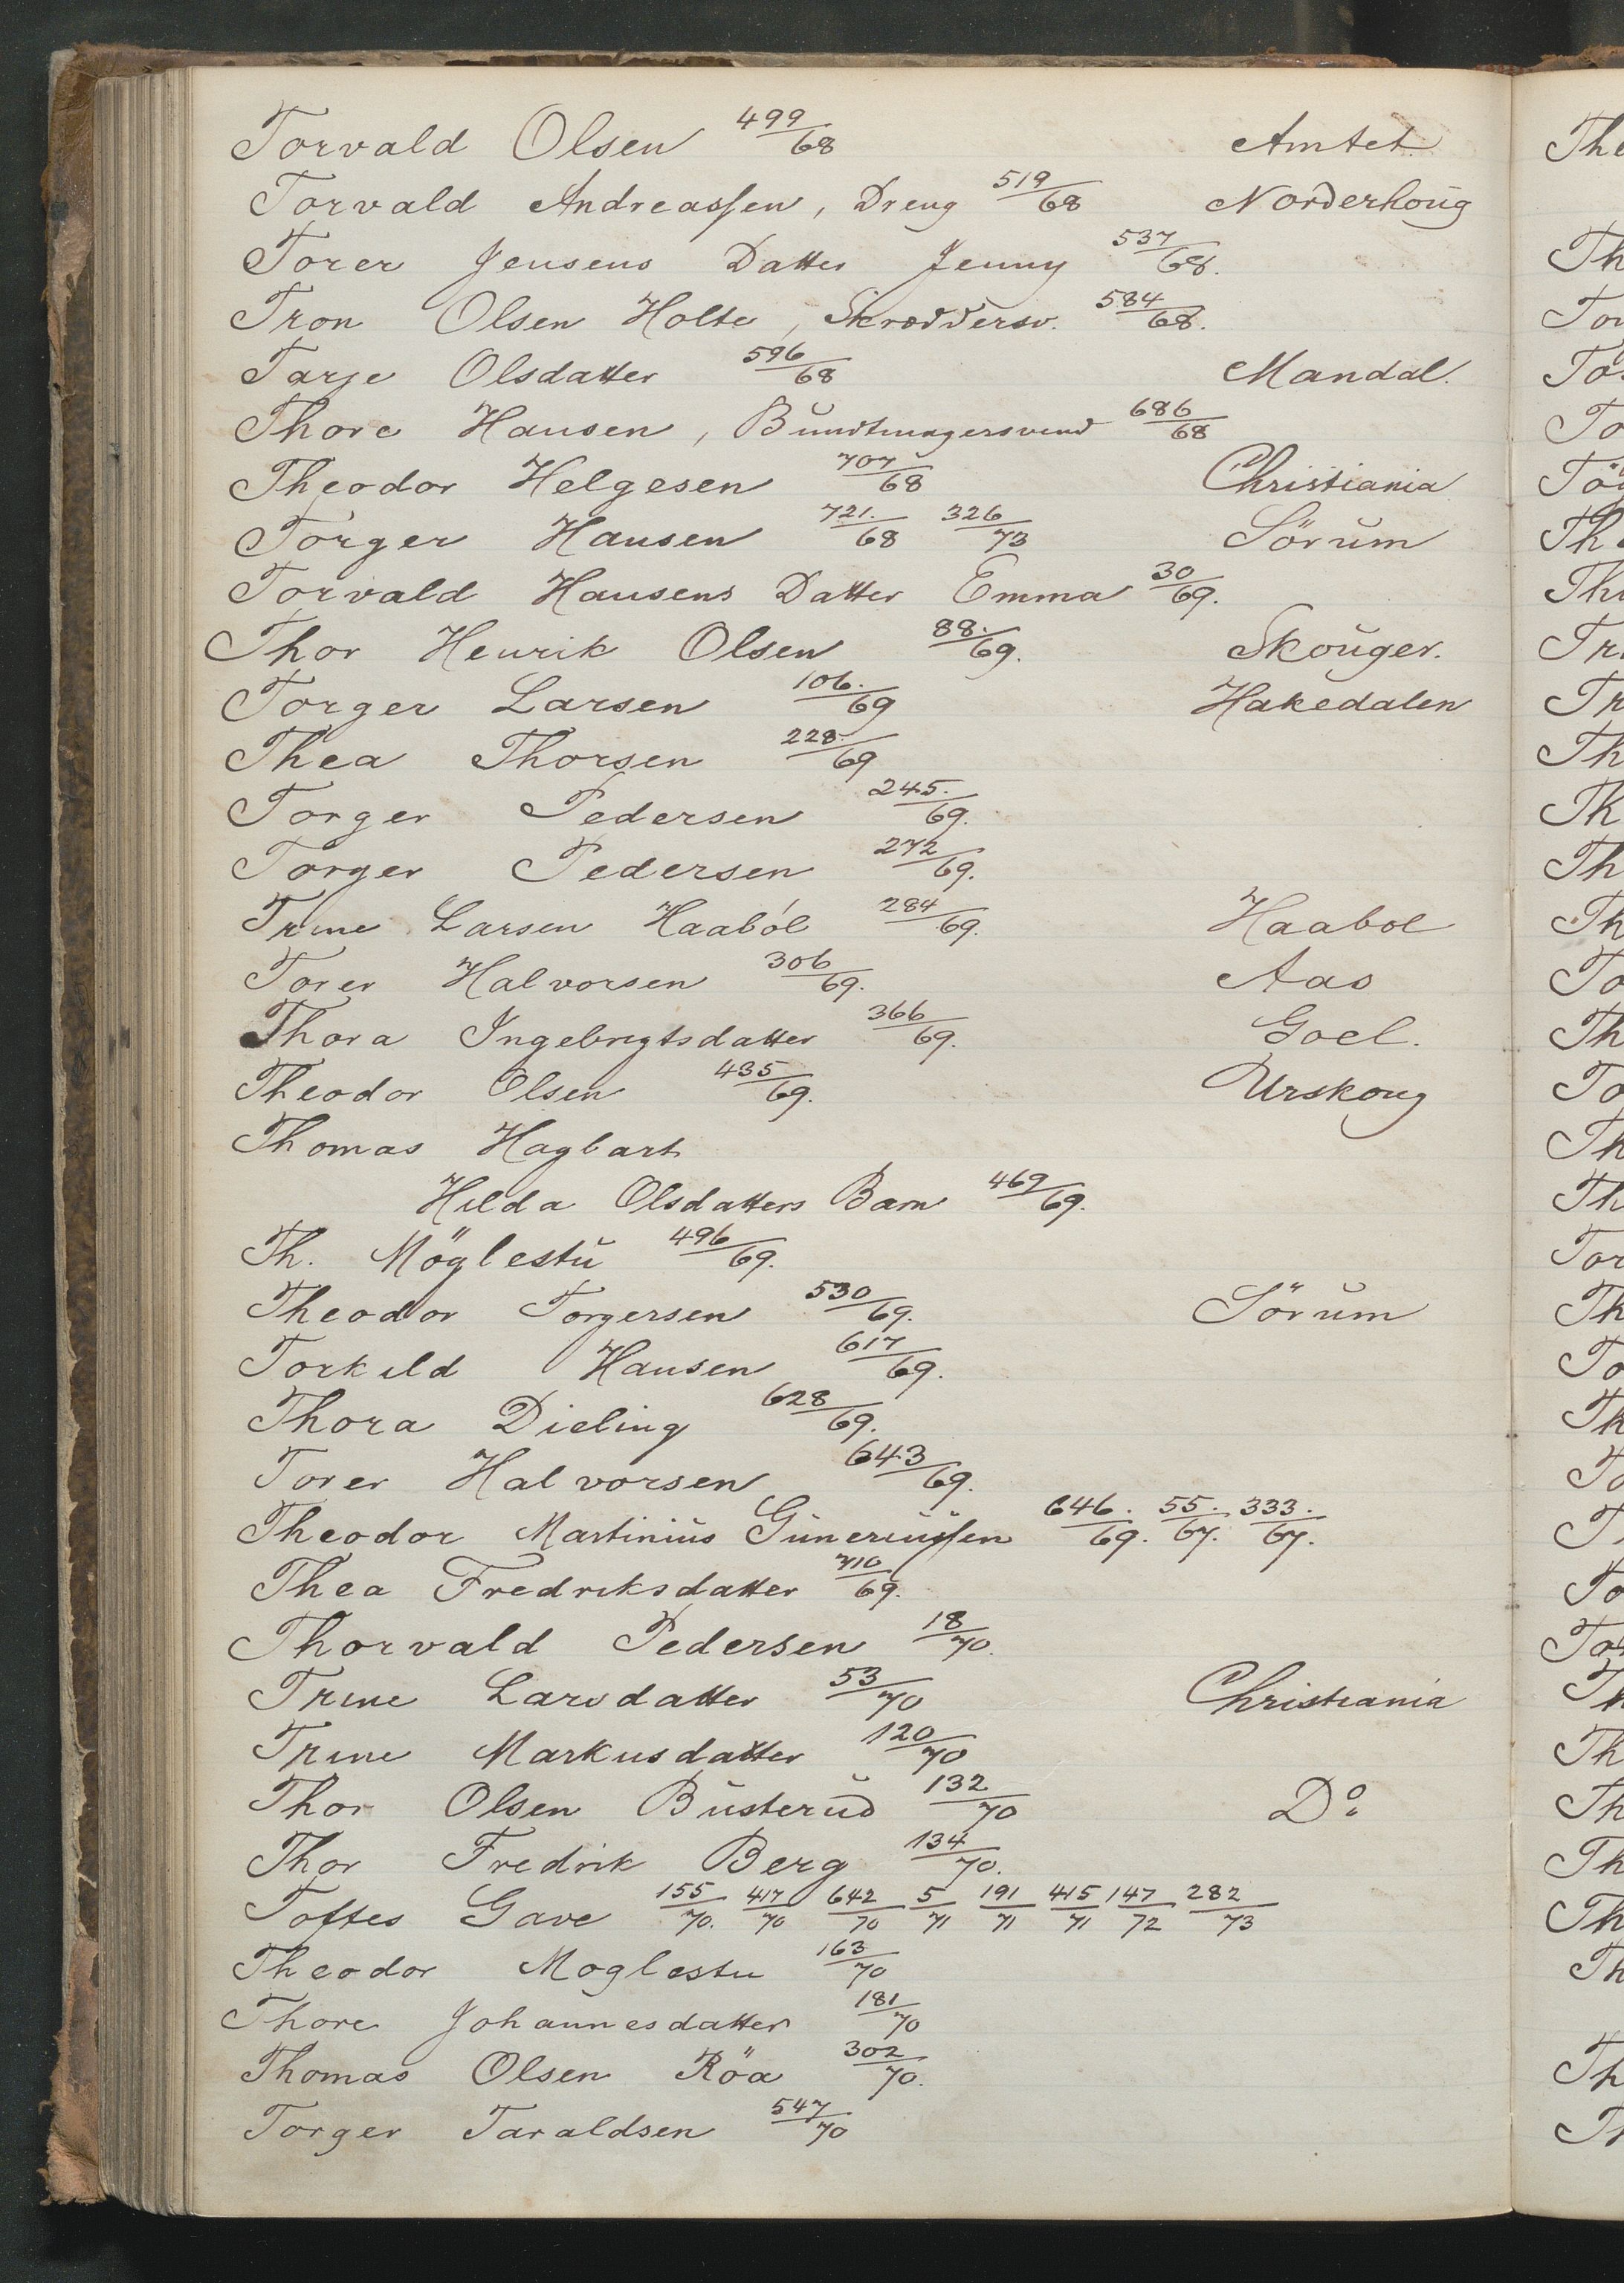 Torvald Olsen 499/68 Amtet
Torvald Andreassen, Dreng 519/68 Norderhoug
Torer Jensens Datter Jenny 537/68.
Tron Olsen Holte, Skræddersv. 584/68.
Tarje Olsdatter 596/68 Mandal.
Thore Hansen, Bundtmagersvend 686/68
Theodor Helgesen 707/68 Christiania
Torger Hansen 721./68 326/73 Sörum
Torvald Hansens Datter Emma 30/69.
Thor Henrik Olsen 88./69. Skouger.
Torger Larsen 106./69 Hakedalen
Thea Thorsen 228./69
Torger Pedersen 245./69.
Torger Pedersen 272/69.
Trine Larsen Haaböl 284/69. Haabol
Torer Halvorsen 306/69. Aas
Thora Ingebrigtsdatter 366/69. Goel.
Theodor Olsen 435/69. Urskoug
Thomas Hagbart
Hilda Olsdatters Barn 469/69.
Th. Möglestu 496/69.
Theodor Torgersen 530/69. Sörum
Torkild Hansen 617/69.
Thora Dieling 628/69.
Torer Halvorsen 643/69.
Theodor Martinius Guneriussen 646./69. 55./67. 333./67.
Thea Fredriksdatter 710/69.
Thorvald Pedersen 18/70.
Trine Larsdatter 53/70 Christiania
Trine Markusdatter 120/70
Thor Olsen Busterud 132/70 Do
Thor Fredrik Berg 134/70.
Toftes Gave 155/70. 417/70 642/70 5/71 191/71 415/71 147/72 282/73
Theodor Moglestu 163/70
Thore Johannesdatter 181/70
Thomas Olsen Röa 302/70.
Torger Taraldsen 547/70